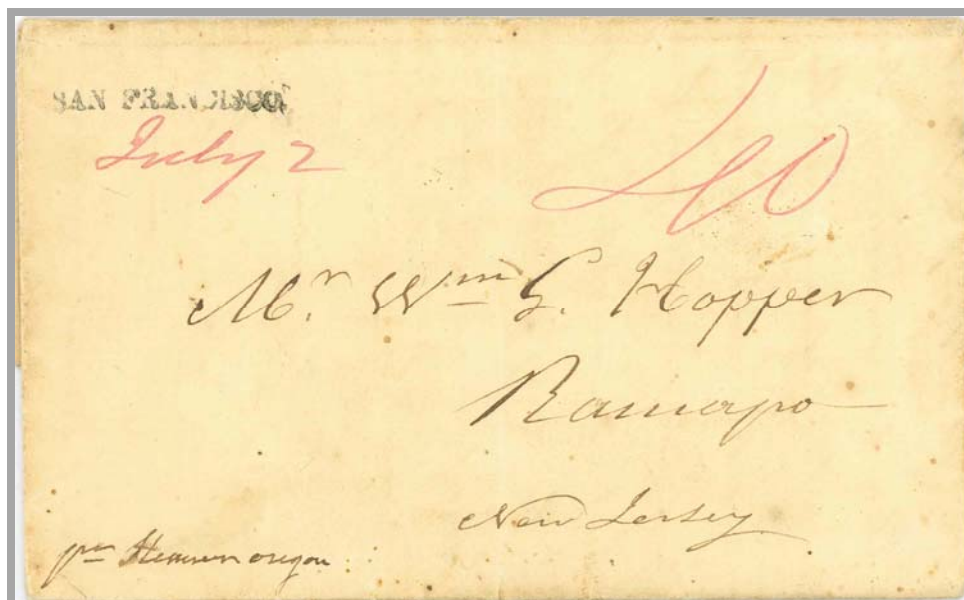 SAN FRANCISCO
July 2
40
Mr. Wm G. Hopper
Ramapo
New Jersey
pr Steamer oregon